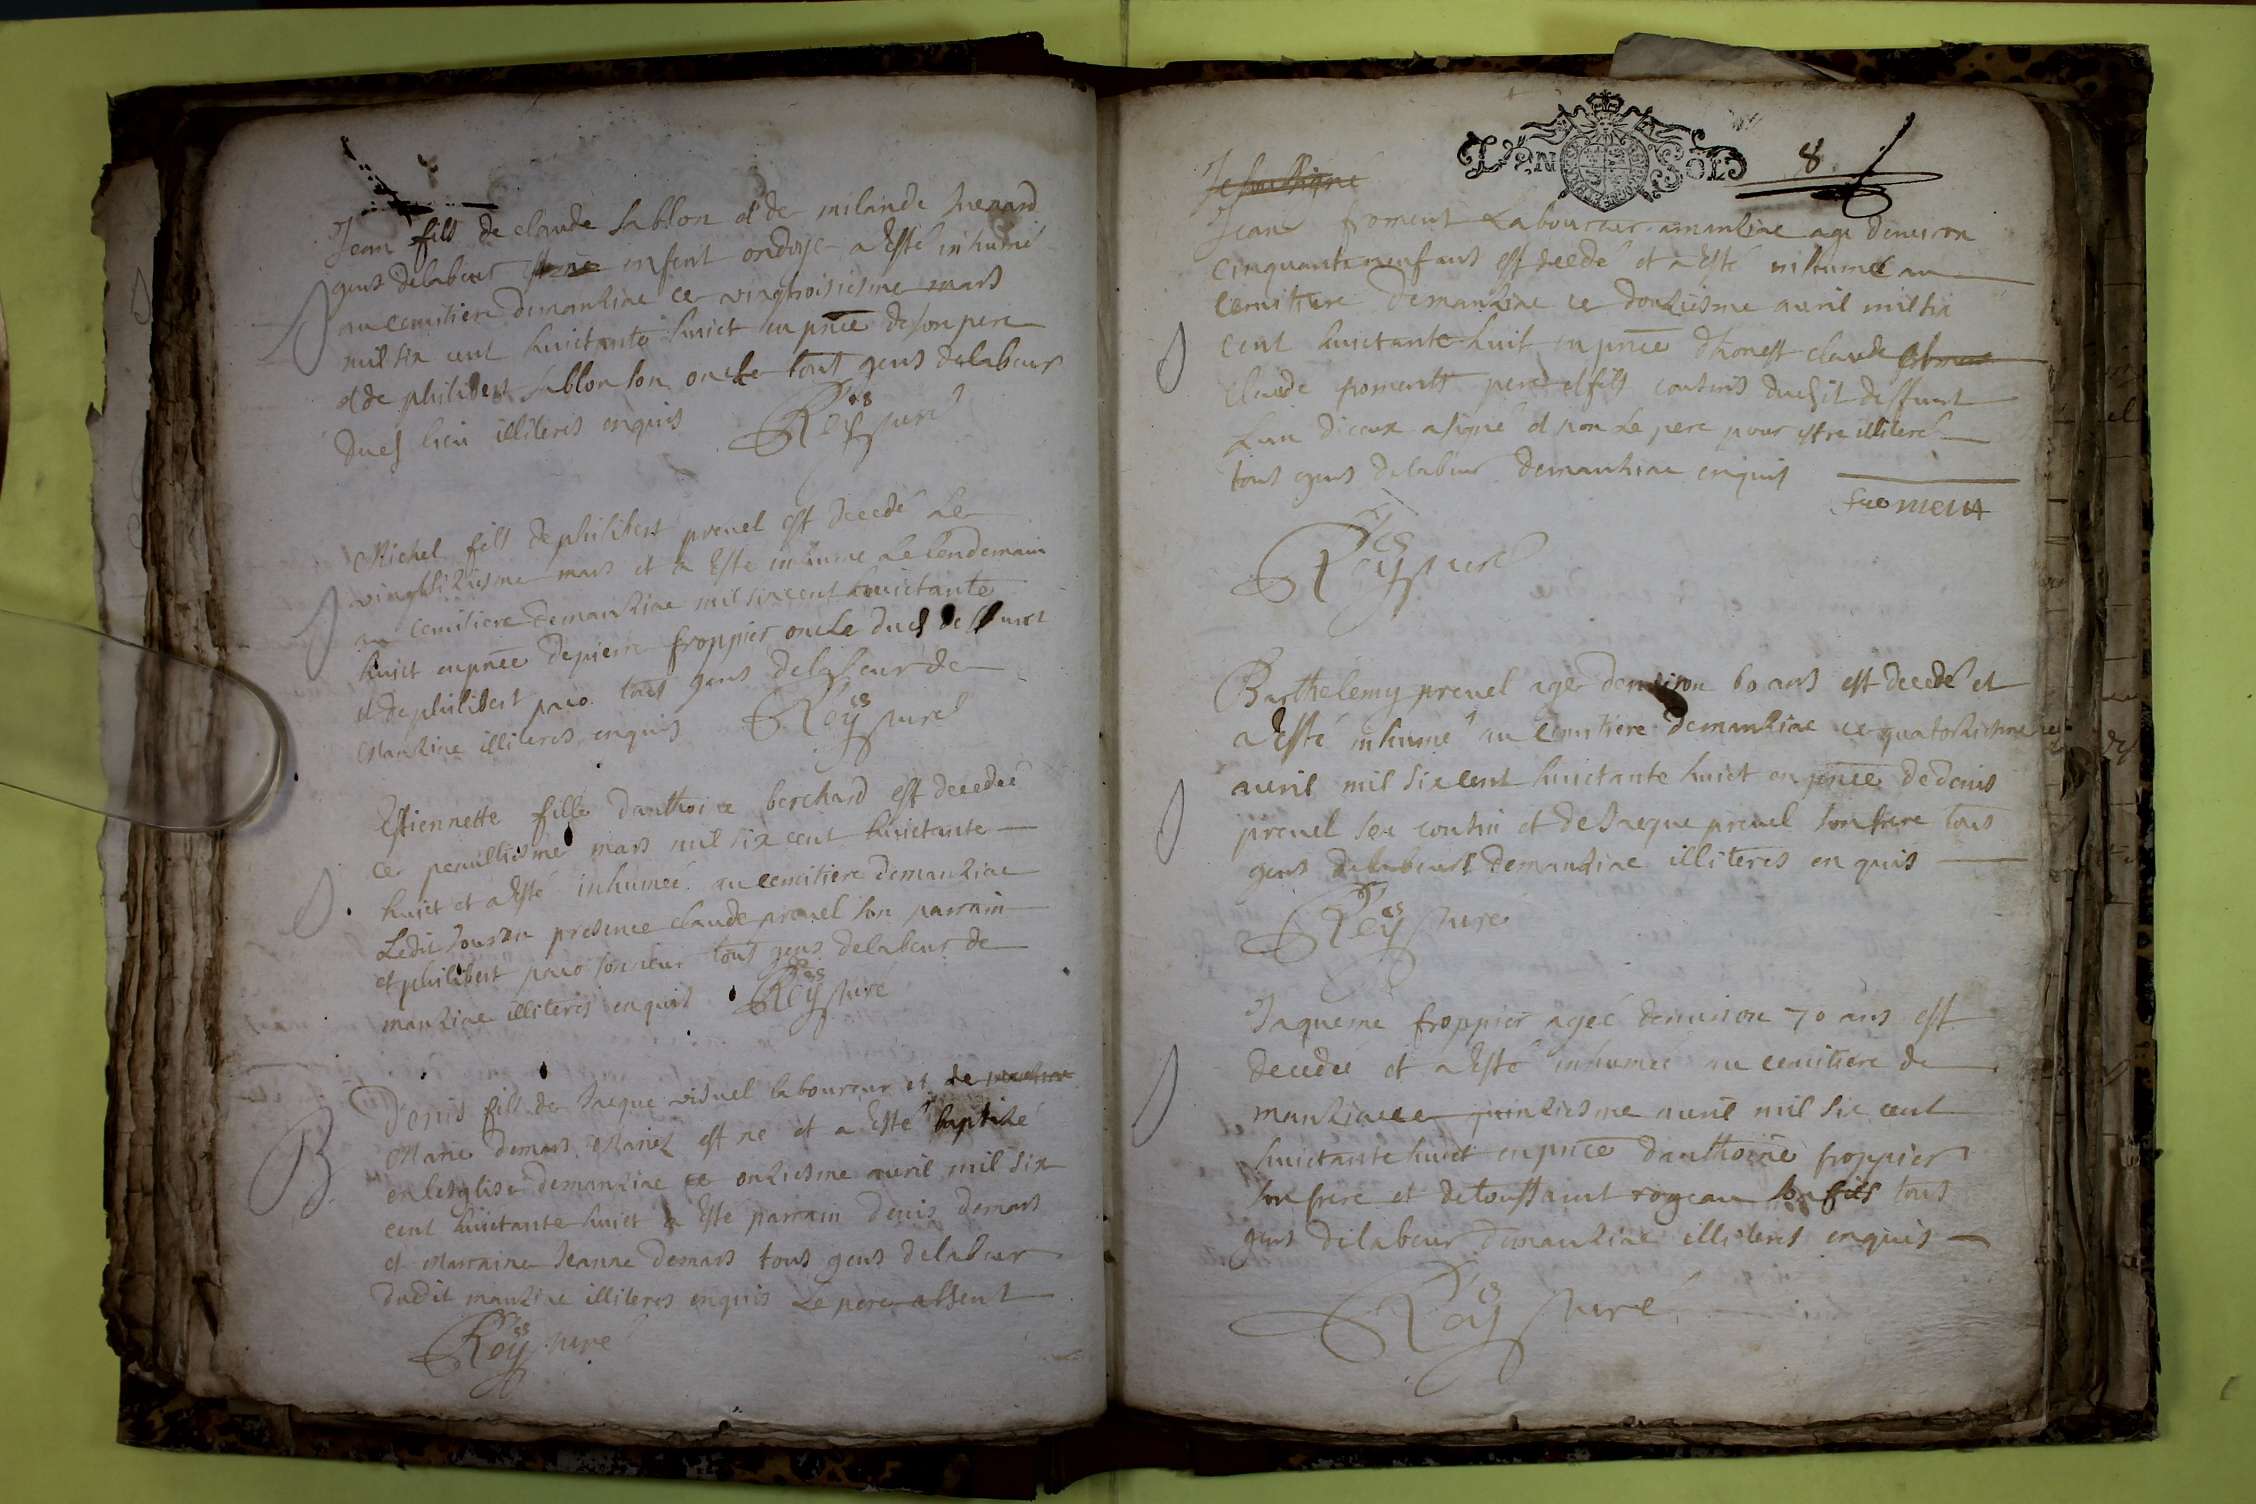 Jean fils de claude sablon et de milande
gens delabeur enfent ondoye a Esté inhumé
au cemitiere demanziac ce vingtroisiesme mars
mil six cent huictante huict en pnce de son pere
et de philibert sablon son oncle tous gens delabeur
dud lieu illiteres enquis
Rey curé
Michel fils de philibert prevel est decedé Le
vingtsiziesme mars et a Este inhumé Le Lendemain
au cemitiere demanziac mil six cent huictante
huict en pnce de pierre froppier oncle dud deffunct
et de philibert paco tous gens delabeur de
Manziac illiteres enquis
Rey curé
Estiennette fille danthoine berchard est decedée
ce penultiesme mars mil six cent huictante
huict et a Esté inhumée au cemitiere demanziac
Ledit Jour en presence claude prevel son parrain
et philibert paco tous gens delabeur de
manziac illiteres enquis
Rey curé
B
Denis fils de Jacque visnel laboureur et
Marie demars Mariez est né et a Esté baptizé
en lesglise demanziac ce onziesme avril mil six
cent huictante huict a Este parrain denis demars
et Marraine Jeanne demars tous gens delabeur
dudit manziac illiteres enquis Le pere absent
Rey curé
8
Je soussigné
Jean froment Laboureur amanziac agé denviron
cinquanteneuf ans est decedé et a Esté inhumé au
cemitiere demanziac ce douziesme avril mil six
cent huictante huit en pnce dhonest claude
Claude froment pere et fils cousins dudit deffunt
Lun diceux a signé et non Le pere pour estre illiteré
tous gens delabeur demanziac enquis
froment
Rey curé
Barthelemy prevel agé denviron 60 ans est decedé et
a Esté inhumé au cemitiere demanziac ce quatorziesme
avril mil six cent huictante huict en pnce de denis
prevel son cousin et de Jacque prevel son frere tous
gens delabeurs demanziac illiteres enquis
Rey curé
Jaqueme froppier agée denviron 70 ans est
decedée et a Esté inhumée au cemitiere de
manziac ce quinziesme avril mil six cent
huictante huict en pnce danthoine froppier
son frere et de toussaint rogeau son fils tous
gens delabeur demanziac illiteres enquis
Rey curé